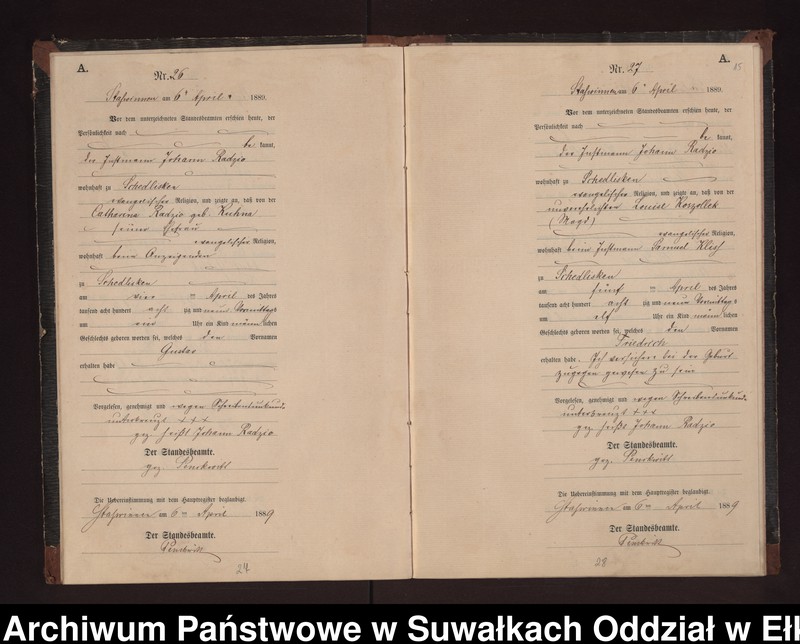 A.
Nr. 26
am 6ᵗ April 1889.
Vor dem unterzeichneten Standesbeamten erschien heute, der
Persönlichkeit nach
be kannt,
der Instmann Johann Radzio
wohnhaft zu Schedlisken
evangelischer Religion, und zeigte an, daß von der
Catharina Radzio geb. Kuhna
seiner Ehefrau
evangelischer Religion,
wohnhaft beim Anzeigenden
zu Schedlisken
am vier ten April des Jahres
tausend acht hundert acht zig und neun Vormittags
um vier Uhr ein Kind männlichen
Geschlechts geboren worden sei, welches den Vornamen
Gustav
erhalten habe
Vorgelesen, genehmigt und wegen Schreibensunkunde
unterkreuzt + + +
gez. heißt Johann Radzio
Der Standesbeamte.
gez.
Die Uebereinstimmung mit dem Hauptregister beglaubigt.
am 6ten April 1889
Der Standesbeamte.
24
A.
Nr. 27
am 6ᵗ April 1889.
Vor dem unterzeichneten Standesbeamten erschien heute, der
Persönlichkeit nach
be kannt,
der Instmann Johann Radzio
wohnhaft zu Schedlisken
evangelischer Religion, und zeigte an, daß von der
unverehelichten Louise Koszollek
(Magd)
evangelischer Religion,
wohnhaft beim Instmann Samuel
zu Schedlisken
am fünf ten April des Jahres
tausend acht hundert acht zig und neun Vormittags
um elf Uhr ein Kind männlichen
Geschlechts geboren worden sei, welches den Vornamen
Friedrich
erhalten habe. Ich versichere bei der Geburt
zugegen gewesen zu sein
Vorgelesen, genehmigt und wegen Schreibensunkunde
unterkreuzt + + +
gez. heißt Johann Radzio
Der Standesbeamte.
gez.
Die Uebereinstimmung mit dem Hauptregister beglaubigt.
am 6ten April 1889
Der Standesbeamte.
28
Archiwum Państwowe w Suwałkach Oddział w Eł